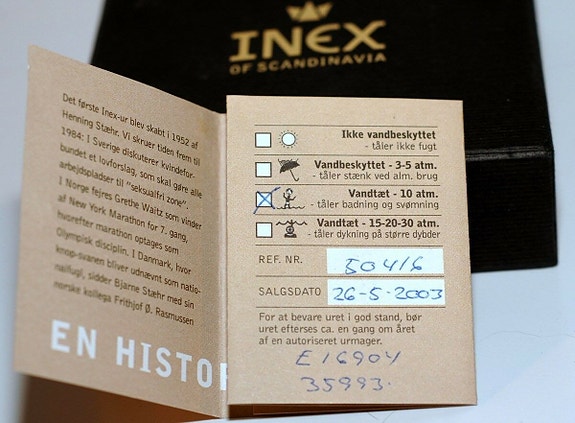 INEX
OF SCANDINAVIA
Det første Inex-ur blev skabt i 1952 af
Henning Stæhr. Vi skruer tiden frem til
1984: I Sverige diskuterer kvindefor-
bundet et lovforslag, som skal gøre alle
arbejdspladser til "seksualfri zone".
I Norge fejres Grethe Waitz som vinder
af New York Marathon for 7. gang,
hvorefter maraton optages som
Olympisk disciplin. I Danmark, hvor
knop-svanen bliver udnævnt som natio-
nalfugl, sidder Bjarne Stæhr med sin
norske kollega Frithjof Ø. Rasmussen
EN HISTOR
Ikke vandbeskyttet
- tåler ikke fugt
Vandbeskyttet - 3-5 atm.
- tåler stænk ved alm. brug
Vandtæt - 10 atm.
- tåler badning og svømning
Vandtæt - 15-20-30 atm.
- tåler dykning på større dybder
REF. NR. 50416
SALGSDATO 26-5-2003
For at bevare uret i god stand, bør
uret efterses ca. en gang om året
af en autoriseret urmager.
E16904
35993.